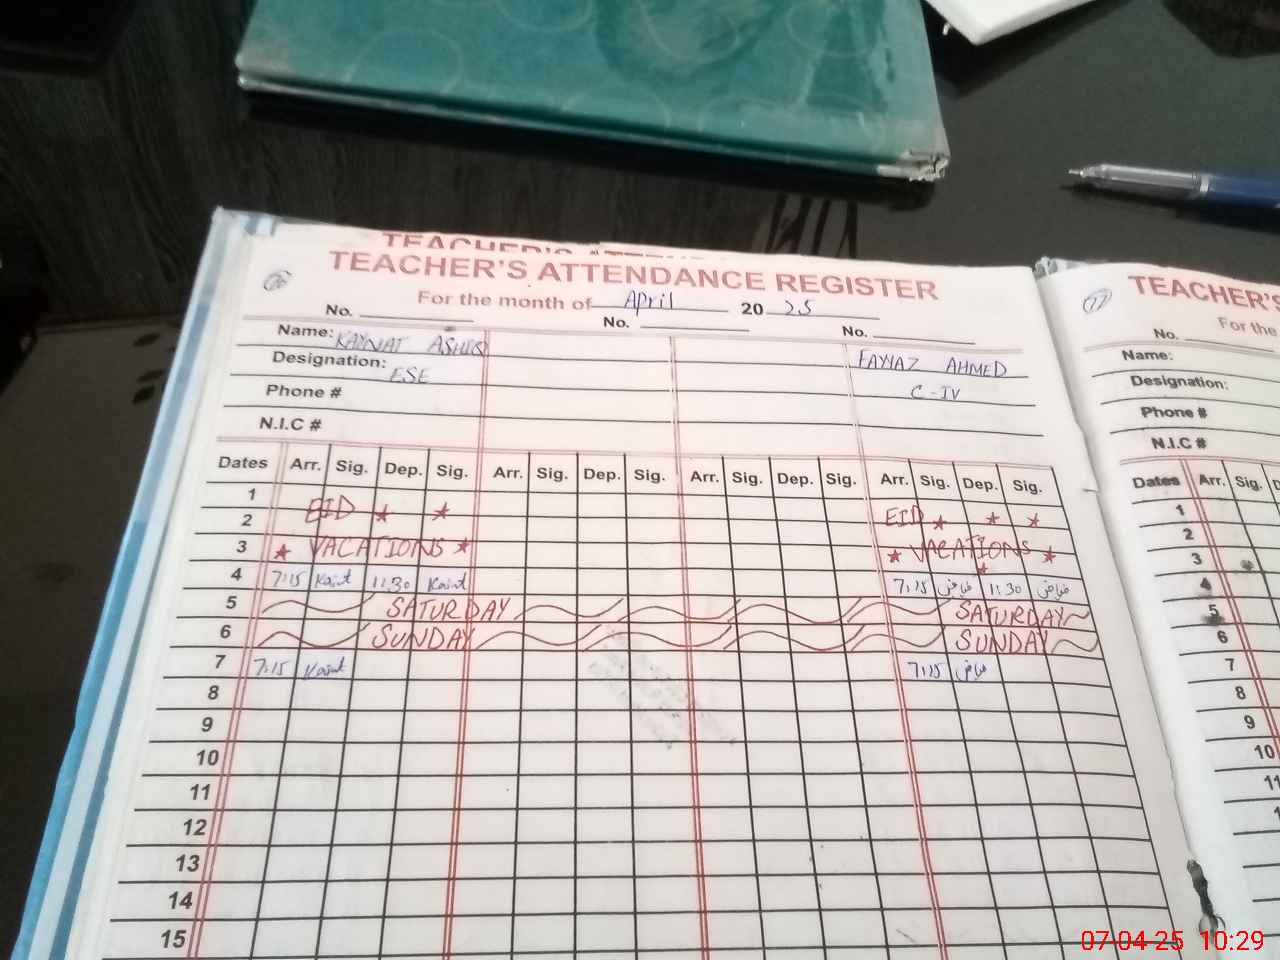 TEACHER'S ATTENDANCE REGISTER
For the month of April 20 25
No. No. No.
Name: KAYNAT ASHIQ FAYYAZ AHMED
Designation: ESE C-IV
Phone #
N.I.C #
Dates Arr. Sig. Dep. Sig. Arr. Sig. Dep. Sig. Arr. Sig. Dep. Sig. Arr. Sig. Dep. Sig.
1
2 EID EID
3 VACATIONS VACATIONS
4 7:15 Kainat 11:30 Kainat 7:15 فیاض 11:30 فیاض
5 SATURDAY SATURDAY
6 SUNDAY SUNDAY
7 7:15 Kainat 7:15 فیاض
8
9
10
11
12
13
14
15
77
TEACHER'S
For the
No.
Name:
Designation:
Phone #
N.I.C #
Dates Arr. Sig.
1
2
3
4
5
6
7
8
9
10
11
07-04-25 10:29